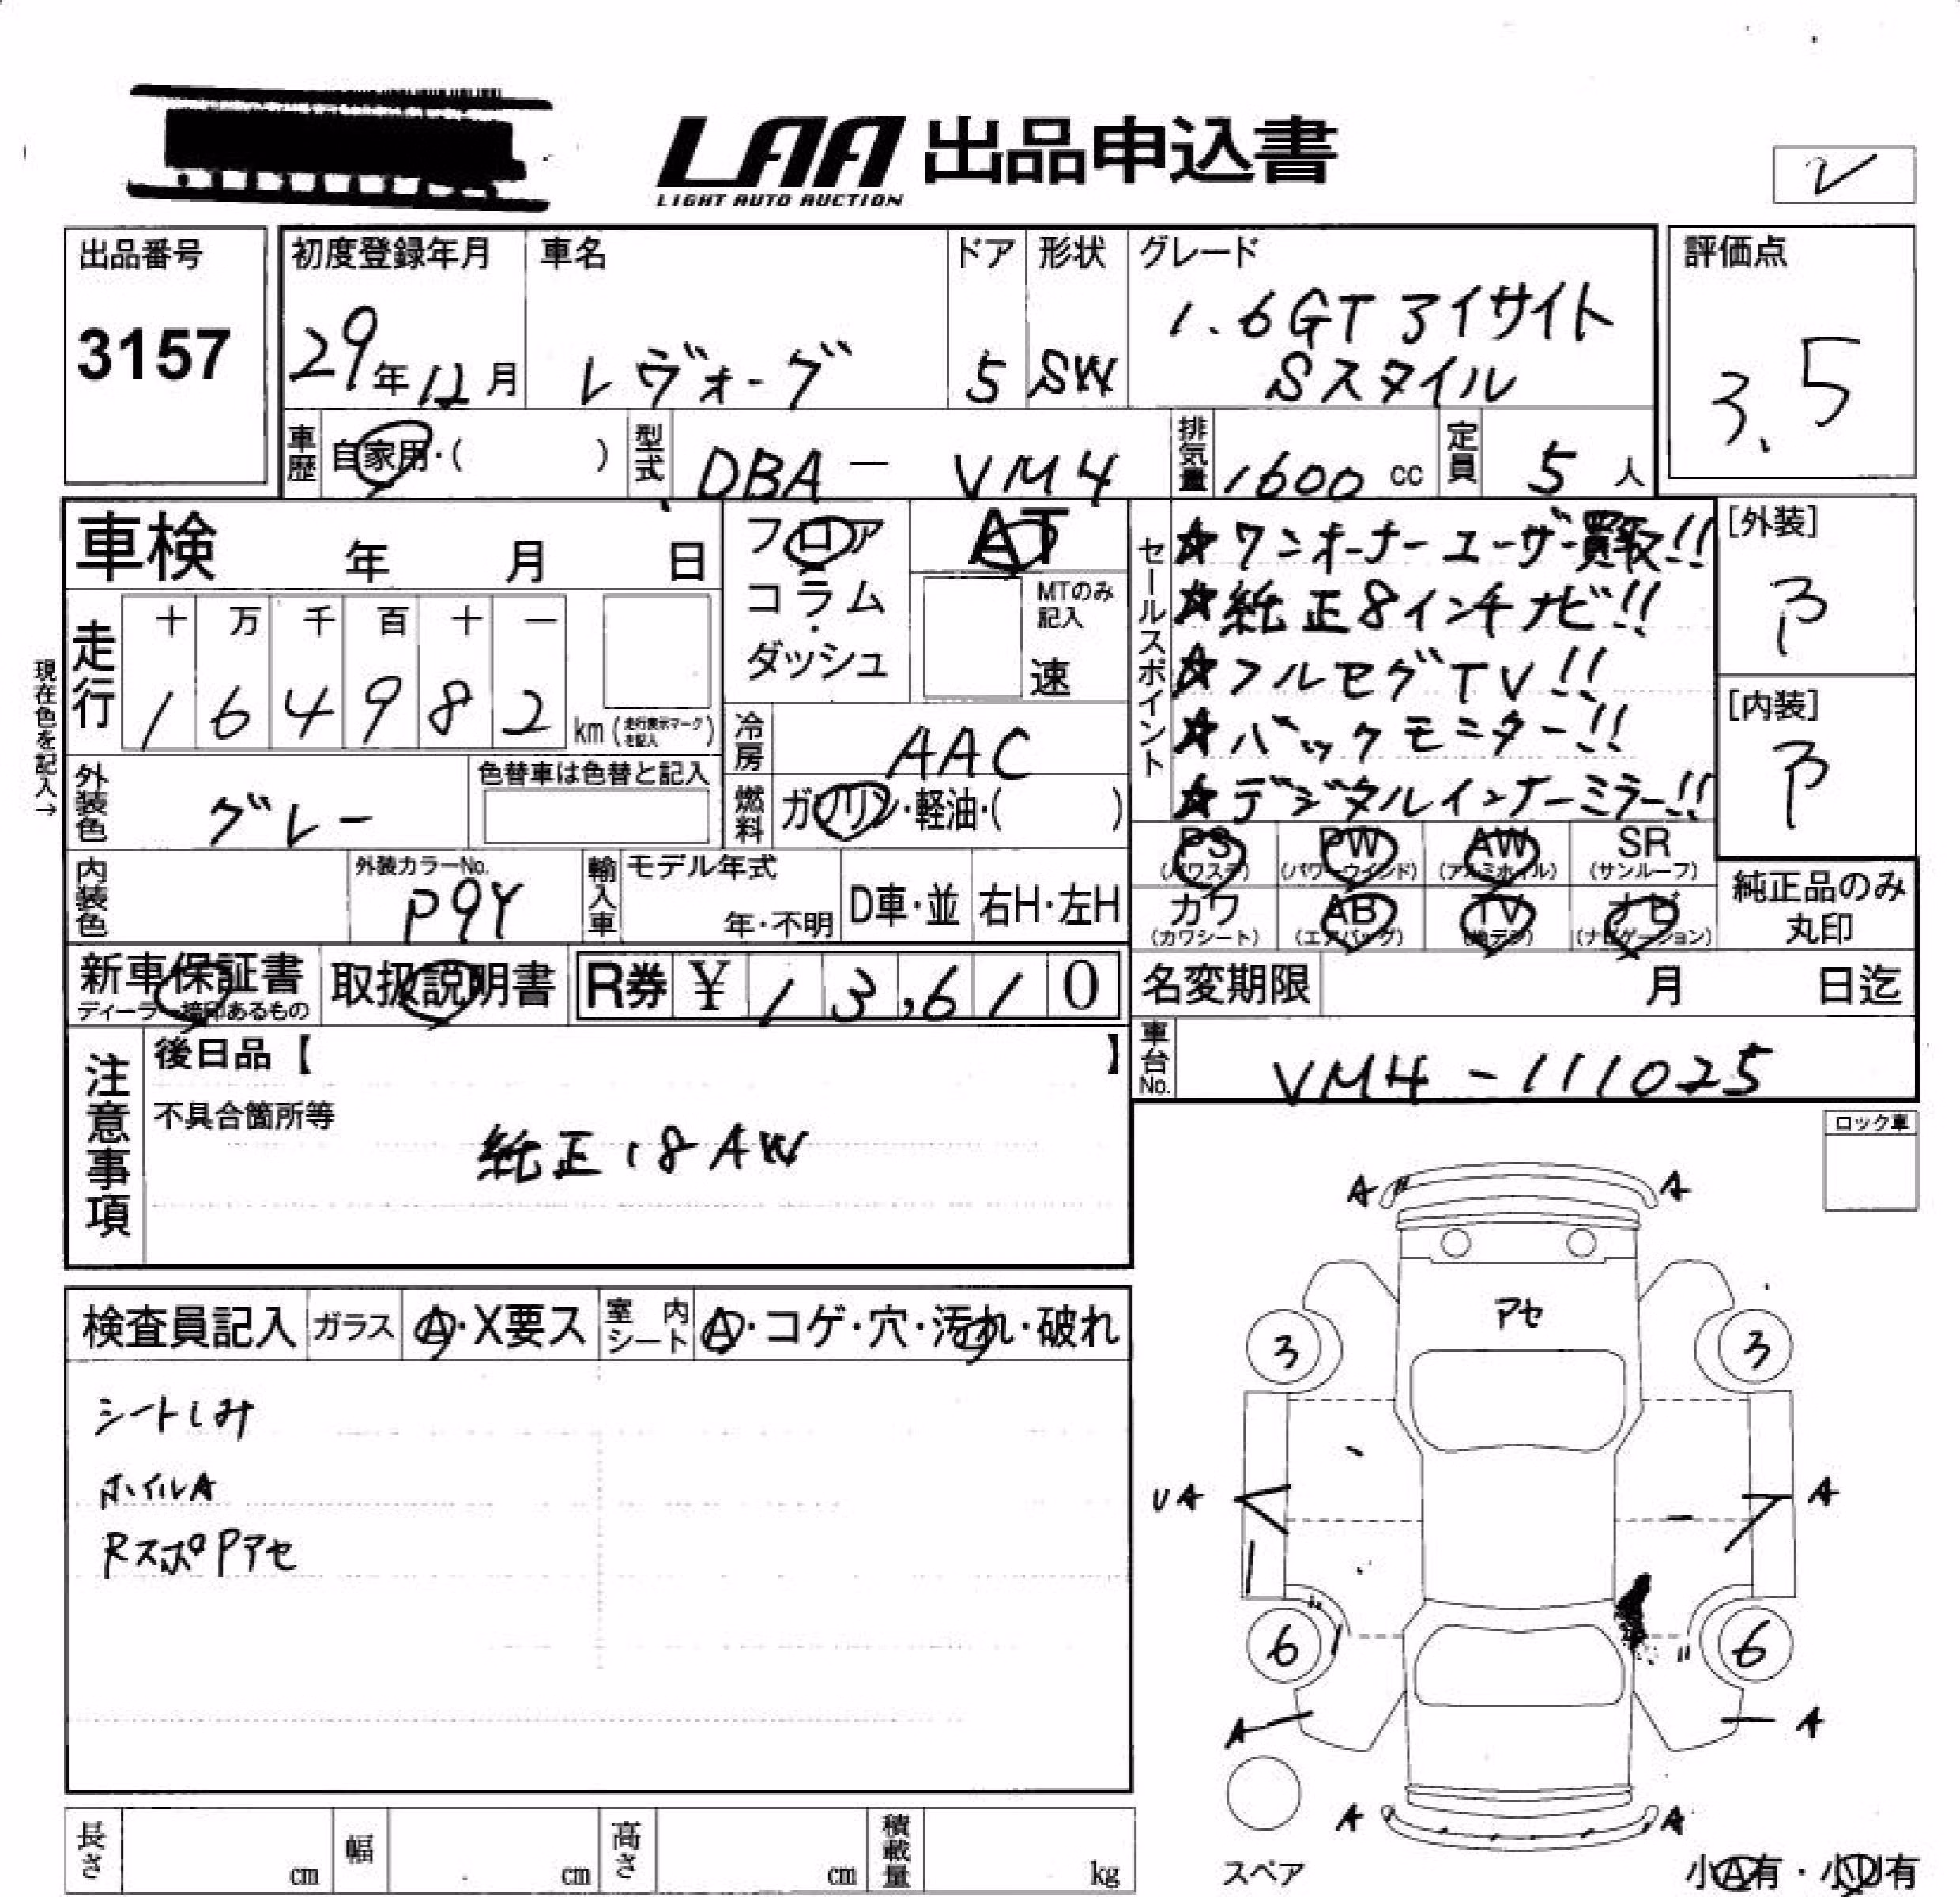 LAA 出品申込書
LIGHT AUTO AUCTION
出品番号
3157
初度登録年月
29年12月
車名
レヴォーグ
ドア
5
形状
SW
グレード
1.6GT アイサイト
Sスタイル
評価点
3.5
車歴
自家用・( )
型式
DBA - VM4
排気量
1600 cc
定員
5 人
車検 年 月 日
フロア
コラム
ダッシュ
AT
MTのみ
記入
速
セールスポイント
☆ワンオーナーユーザー買取!!
☆純正8インチナビ!!
☆フルセグTV!!
☆バックモニター!!
☆デジタルインナーミラー!!
[外装]
[内装]
現在色を記入→
走行
十 万 千 百 十 一
1 6 4 9 8 2
km (走行表示マークを記入)
冷房
AAC
外装色
グレー
色替車は色替と記入
燃料
ガソリン・軽油・( )
PS PW AW SR
(パワステ) (パワーウインド) (アルミホイル) (サンルーフ)
カワ AB TV ナビ
(カワシート) (エアバッグ) (地デジ) (ナビゲーション)
純正品のみ
丸印
内装色
外装カラーNo.
P9Y
輸入車
モデル年式
年・不明
D車・並
右H・左H
新車保証書
ディーラー捺印あるもの
取扱説明書
R券 ¥ 13,610
名変期限 月 日迄
車台No.
VM4-111025
注意事項
後日品【 】
不具合箇所等
純正18AW
ロック車
検査員記入
ガラス
A・X要ス
室内シート
A・コゲ・穴・汚れ・破れ
シートしみ
ホイルA
RスポPアセ
A A
アセ
3 3
UA A
6 6
A A
A A
スペア
小A有・小U有
長さ cm
幅 cm
高さ cm
積載量 kg